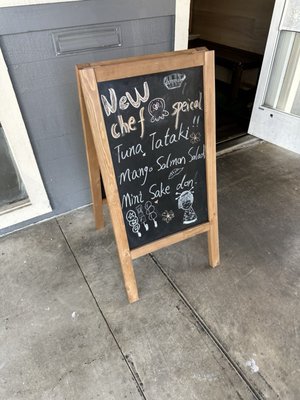 New
chef speical
Tuna Tataki !!
Mango Salmon Salads
Mini Sake don